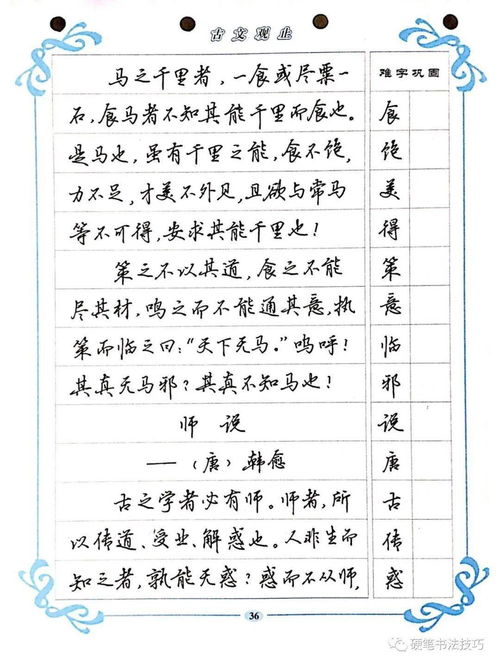 古文观止
马之千里者，一食或尽粟一
石，食马者不知其能千里而食也。
是马也，虽有千里之能，食不饱，
力不足，才美不外见，且欲与常马
等不可得，安求其能千里也！
策之不以其道，食之不能
尽其材，鸣之而不能通其意，执
策而临之曰：“天下无马。”呜呼！
其真无马邪？其真不知马也！
师 说
——（唐）韩愈
古之学者必有师。师者，所
以传道、受业、解惑也。人非生而
知之者，孰能无惑？惑而不从师，
难字巩固
食
饱
美
得
策
意
临
邪
说
唐
古
传
惑
36
硬笔书法技巧